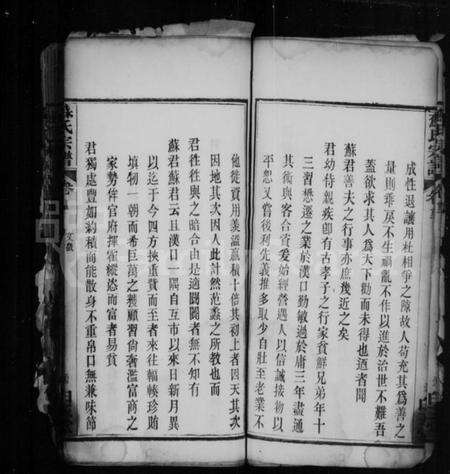 成性退讓用杜相爭之障故人苟充其為善之
量則乖戾不生禍亂不作以進於治世不難吾
蓋欲求其人為天下勸而未得也迺者聞
蘇君善夫之行事亦庶幾近之矣
君幼侍親疾即有古孝子之行家貧鮮兄弟年十
三習懋遷之業於漢口勤敏過於庸三年盡通
其術與客合資爰始經營遇人以信誠接物以
平恕又嘗後利先義推多取少自壯至老業不
他徙資用漢溢贏積十倍其初上者因天其次
因地其次因人此計然范蠡之所教也而
君往往與之暗合由是適闤闠者無不知有
蘇君蘇君云且漢口一隅自互市以來日新月異
以迄于今四方挾重貲而至者來往輻輳珍賄
填牣一朝而希巨萬之獲顧習尚奢濫富商之
家勢侔官府揮霍縱恣而富者易貧
君獨處豐如約積而能散身不重帛口無兼味節
蘇氏宗譜
卷
文藝
蘇氏宗譜